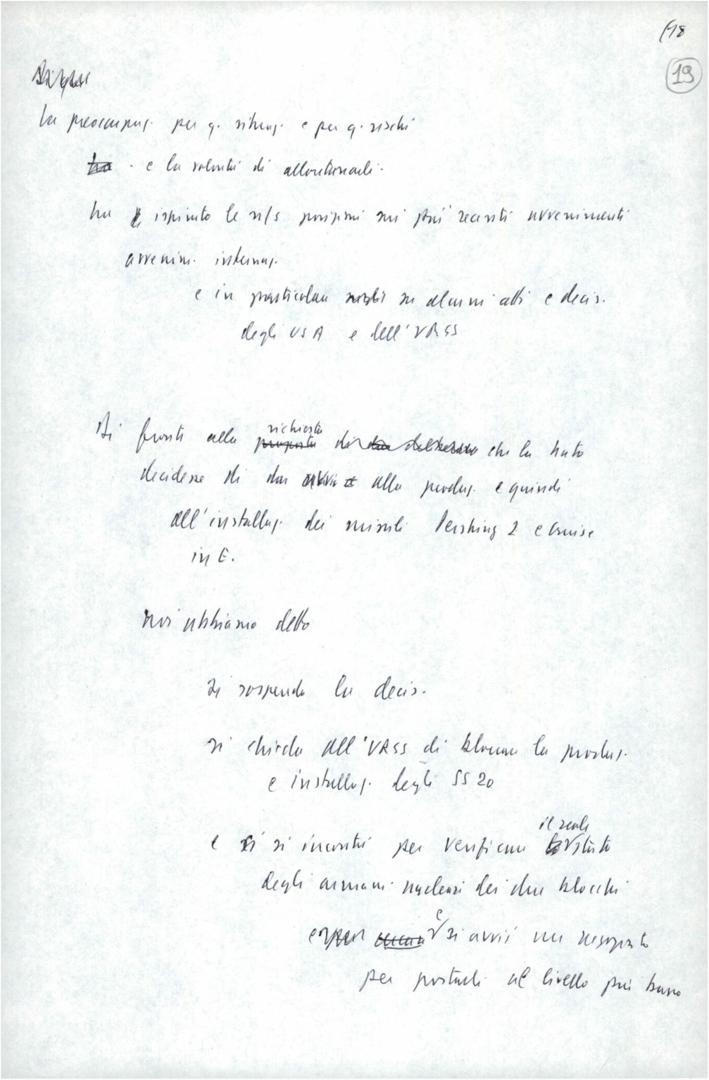 18
19
La preoccupaz. per q. situaz. e per q. rischi
ha - e la volontà di allontanarli -
ha ispirato le n/s posizioni sui più recenti avvenimenti
avvenim. internaz.
e in particolare su alcuni atti e decis.
degli USA e dell'URSS
Di fronte alla richiesta
proposta che la Nato
decidesse di dar avvio alla produz. e quindi
all'installaz. dei missili Pershing 2 e Cruise
in E.
noi abbiamo detto
si sospenda la decis.
si chieda all'URSS di bloccare la produz.
e installaz. degli SS 20
il reale
e si si incontri per verificare lo stato
degli armam. nucleari dei due blocchi
e
si avvii un negoziato
per portarli al livello più basso